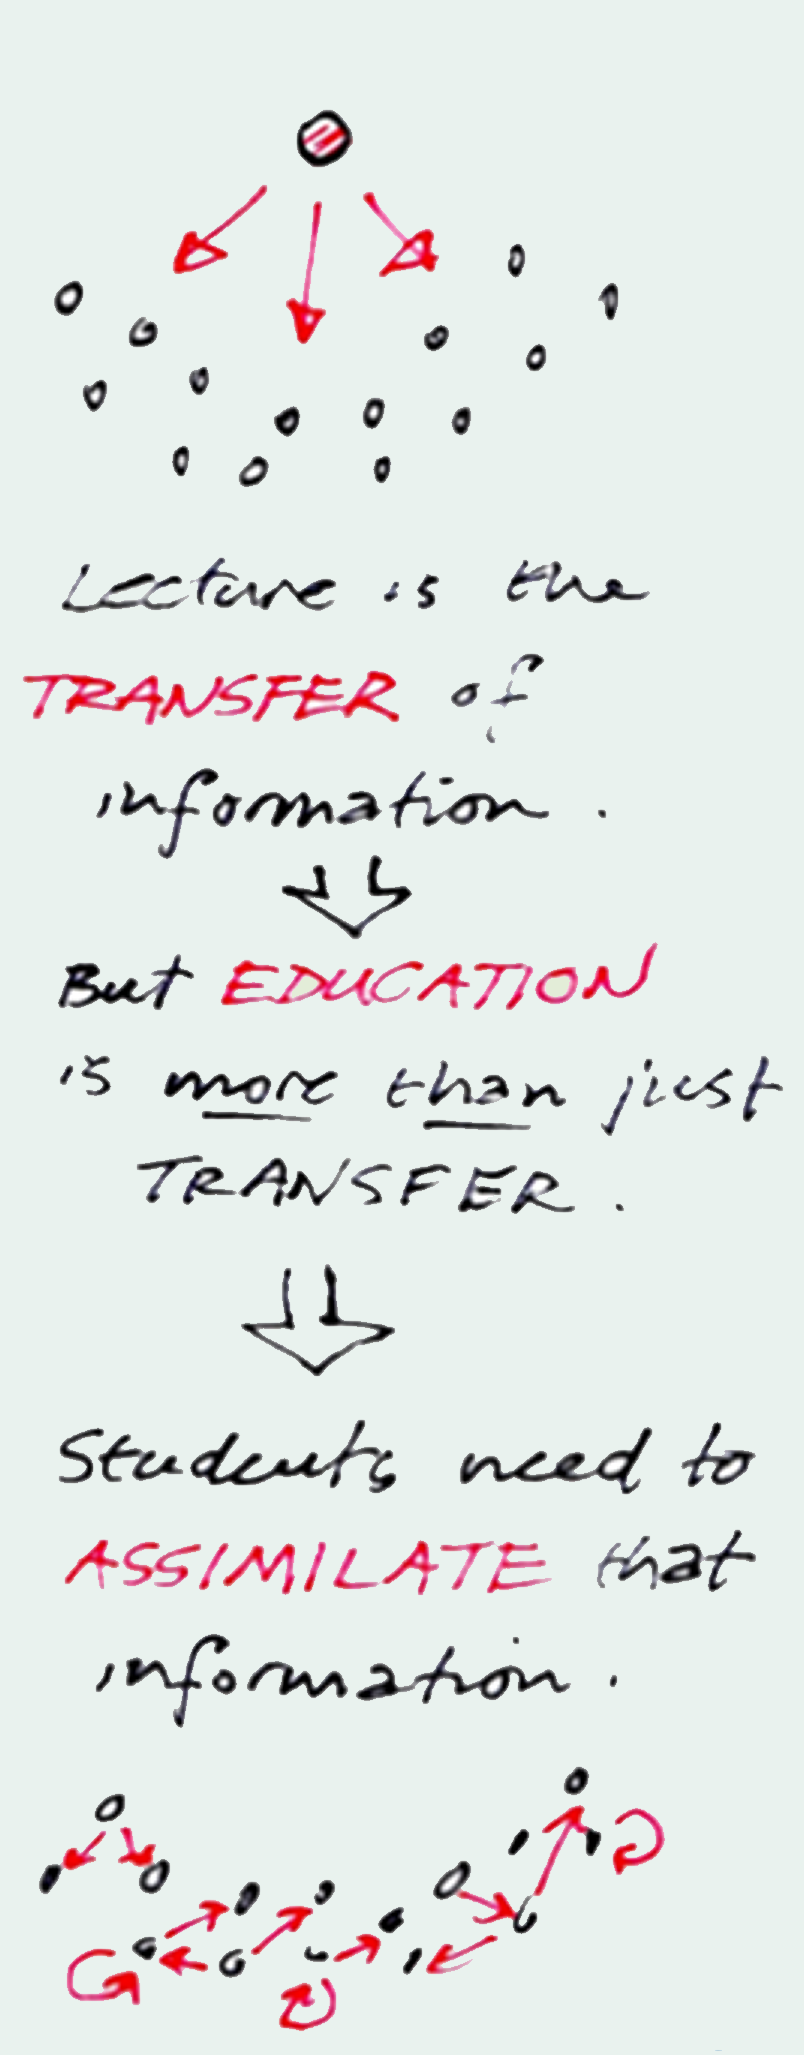 Lecture is the
TRANSFER of
information.
But EDUCATION
is more than just
TRANSFER.
Students need to
ASSIMILATE that
information.